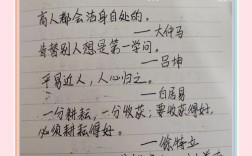 商人都会洁身自处的。
——大仲马
肯替别人想是第一学问。
——吕坤
平易近人，人心归之。
——白居易
一分耕耘，一分收获；要收获得好，
必须耕耘得好。
——徐特立